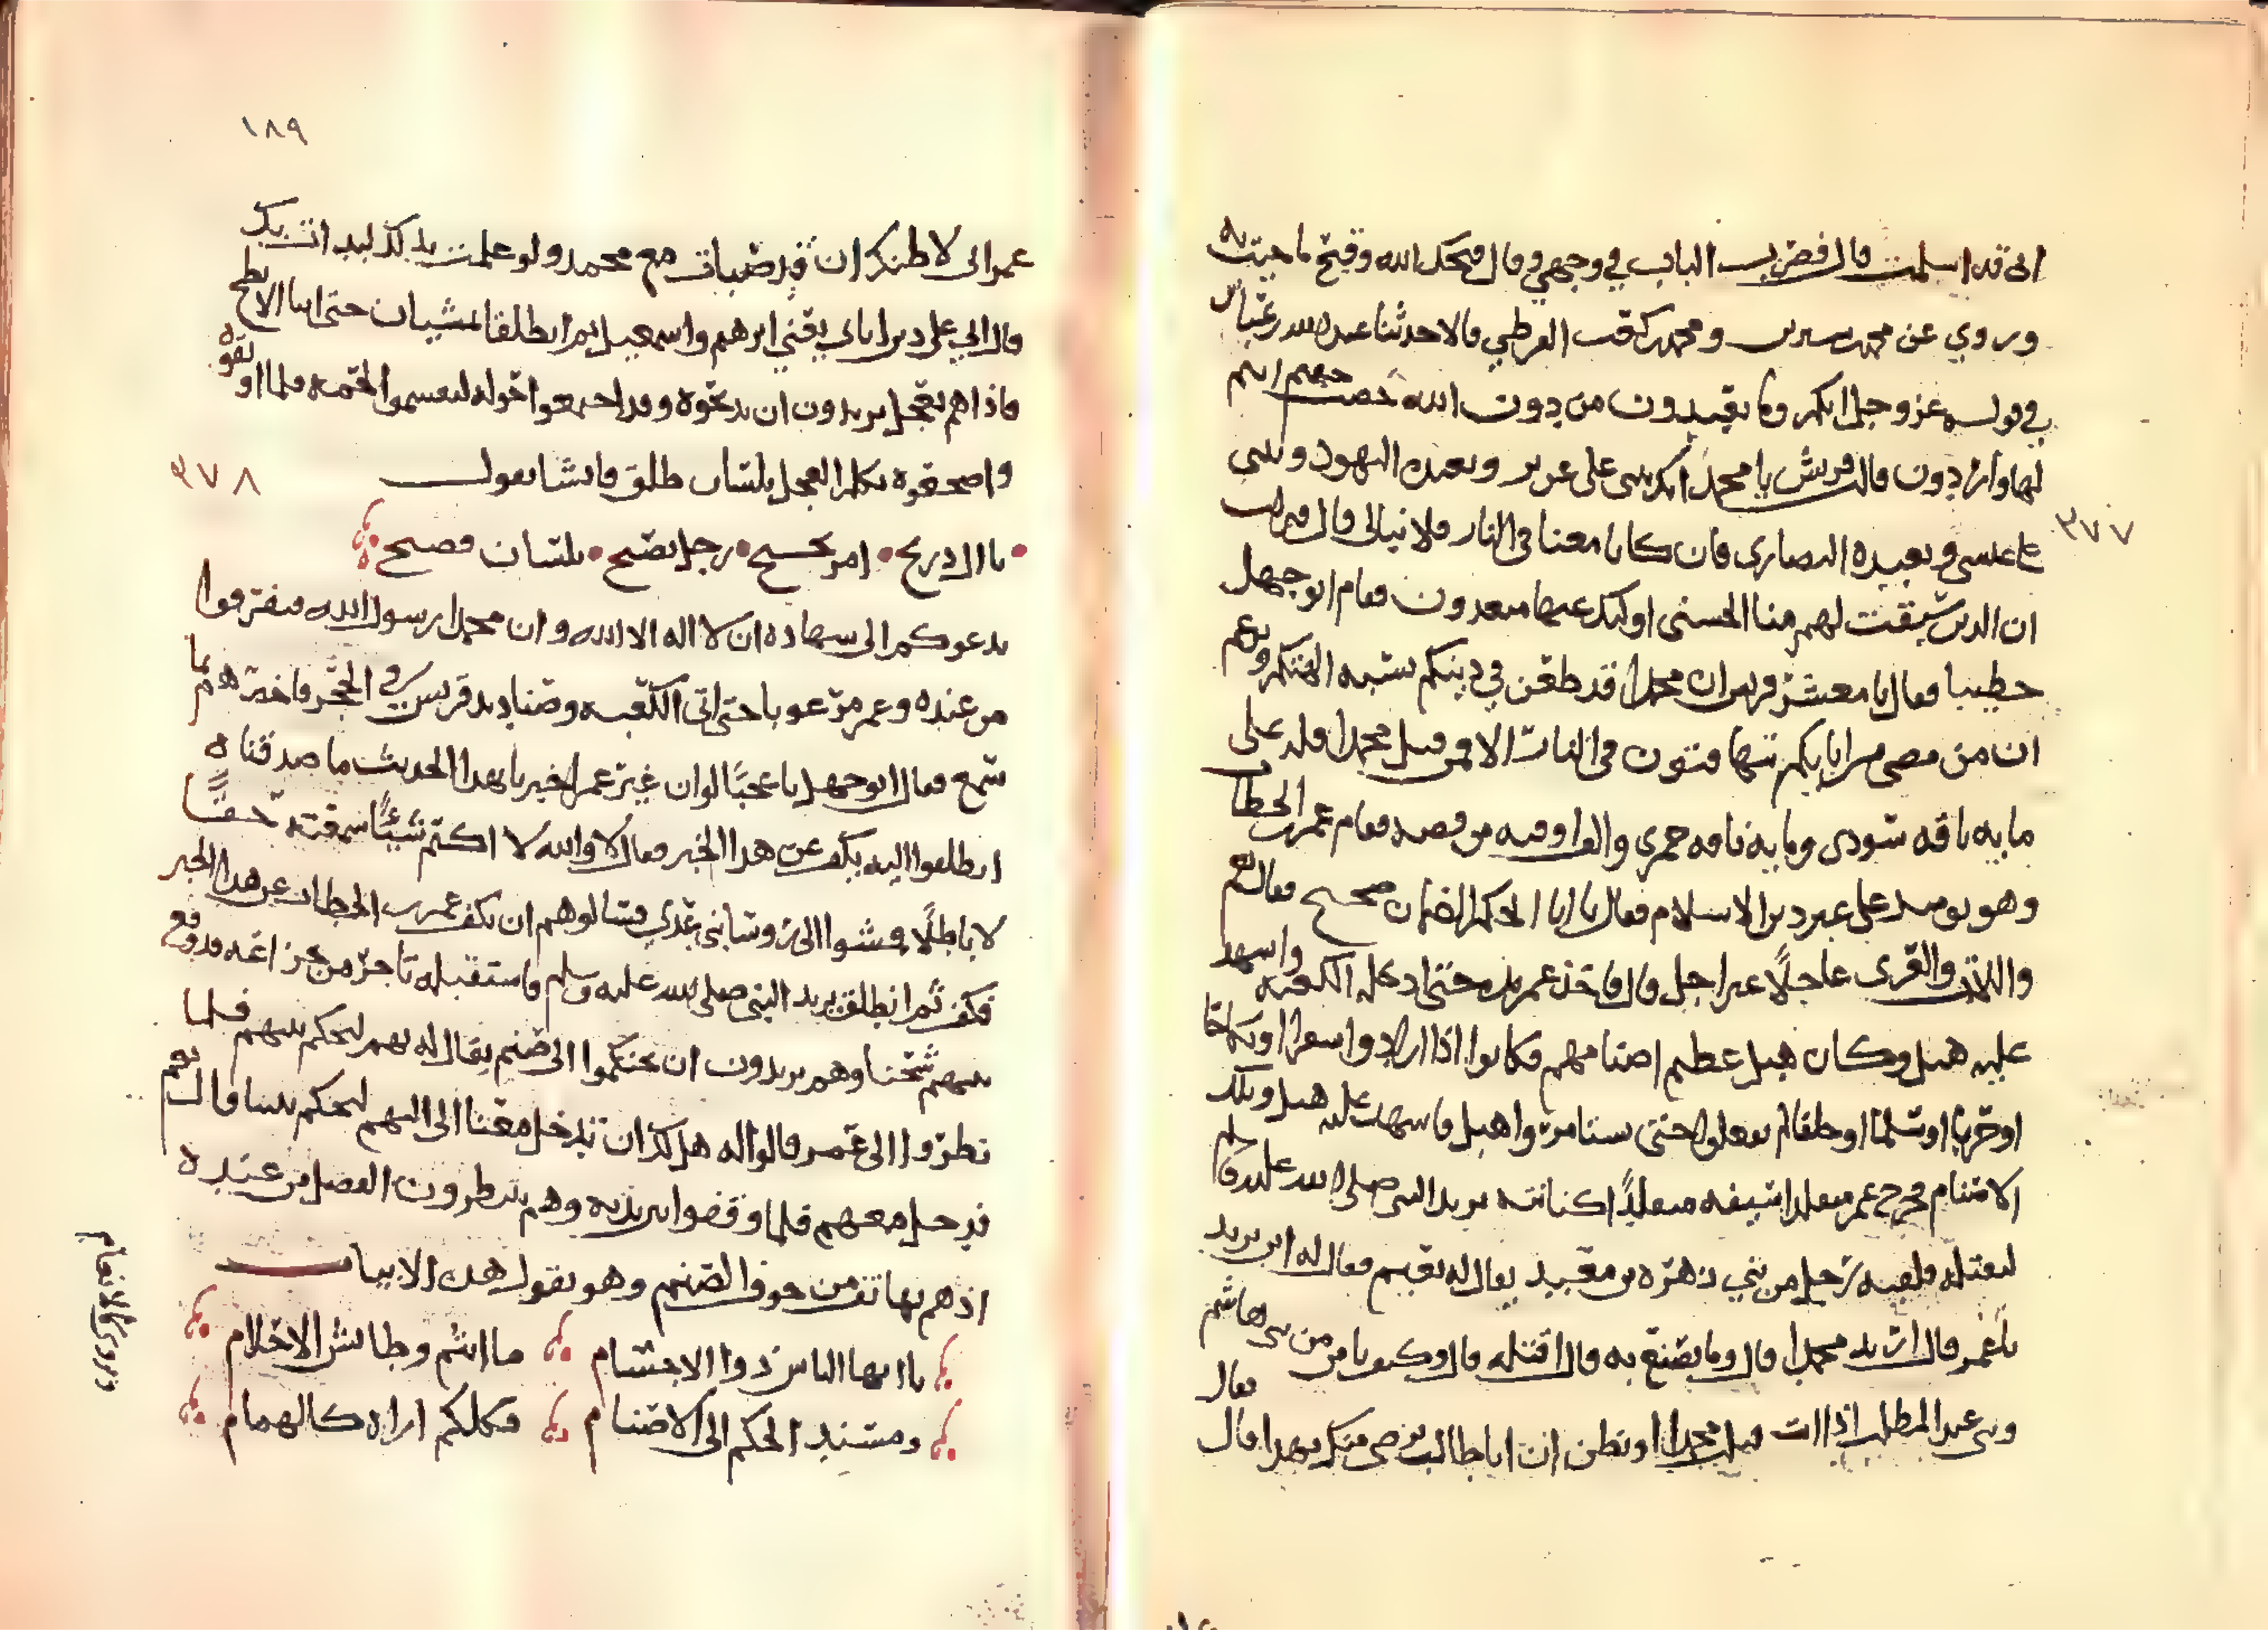 اني قد اسلمت قال فضرب الباب في وجهي وقال قبحك الله وقبح ما جيت به
وروي عن محمد بن سيرين ومحمد بن كعب القرظي قالا حدثنا عبد الله بن عباس
في قوله عز وجل انكم وما تعبدون من دون الله حصب جهنم انتم
لها واردون قالت قريش يا محمد انك تثني على عزير وتعبده اليهود وتثني
٣٧٧
على عيسى وتعبده النصارى فان كانا معنا في النار فلا نبالي قال فنزلت
ان الذين سبقت لهم منا الحسنى اوليك عنها مبعدون فقام ابو جهل
خطيبا فقال يا معشر قريش ان محمدا قد طعن في دينكم وشتم الهتكم وزعم
ان من مضى من ابايكم يتهافتون في النار الا ومن قتل محمدا فله علي
مايه ناقه سودى ومايه ناقه حمرى والف اوقيه من فضه فقام عمر بن الخطاب
وهو يوميد على غير دين الاسلام فقال يا ابا الحكم الضمان صحيح فقال نعم
واللات والعزى عاجلا غير اجل قال فاخذ عمر بيده حتى ادخله الكعبه واشهد
عليه هبل وكان هبل عظيم اصنامهم فكانوا اذا ارادوا سفرا او نكاحا
او حربا او سلما او حلفا لم يفعلوا حتى يستامروا هبل فاشهد عليه هبل وتلك
الاصنام فخرج عمر متقلدا سيفه متقلدا كنانته يريد النبي صلى الله عليه وسلم
ليقتله فلقيه رجل من بني زهره بن معبد يقال له نعيم فقال له اين تريد
يا عمر قال اريد محمدا قال وما تصنع به قال اقتله قال وكيف تامن من بني هاشم
وبني عبد المطلب اذا انت قتلت محمدا او تظن ان ابا طالب يرضى منك بهذا فقال
١٨٩
عمر اني لاظنك ان قد صبات مع محمد ولو علمت بذلك لبدات بك
قال اني على دين اباي يعني ابرهيم واسمعيل ثم انطلقا يمشيان حتى اتيا الابطح
فاذا هم بعجل يريدون ان يذبحوه وقد اجتمعوا حوله ليقسموا لحمه فلما اوثقوه
واضجعوه تكلم العجل بلسان طلق فانشا يقول
٣٧٨
يا ال ذريح امر نجيح رجل يصيح بلسان فصيح
يدعوكم الى شهاده ان لا اله الا الله وان محمدا رسول الله فتفرقوا
من عنده وعمر مرعوبا حتى اتى الكعبه وصناديد قريش في الحجر فاخبرهم بما
سمع فقال ابو جهل يا عجبا لو ان غير عمر اخبرنا بهذا الحديث ما صدقناه
انطلقوا اليه يكف عن هذا الخبر فقال لا والله لا اكتم شيئا سمعته حقا
لا باطلا فمشوا الى روسا بني عدي فسالوهم ان يكف عمر بن الخطاب عن هذا الخبر
فكف ثم انطلق يريد النبي صلى الله عليه وسلم فاستقبله تاجر من خزاعه قد وقع
بينهم شحنا وهم يريدون ان يحتكموا الى صنم يقال له بهم ليحكم بينهم فلما
نظروا الى عمر قالوا له هل لك ان تدخل معنا الى الهم ليحكم بيننا قال نعم
فدخل معهم فلما وقفوا بين يديه وهم ينتظرون الفصل من عنده
اذ هم بهاتف من جوف الصنم وهو يقول هذه الابيات
يا ايها الناس ذووا الاجسام ما انتم وطايش الاحلام
ومسند الحكم الى الاصنام فكلكم اراه كالهمام